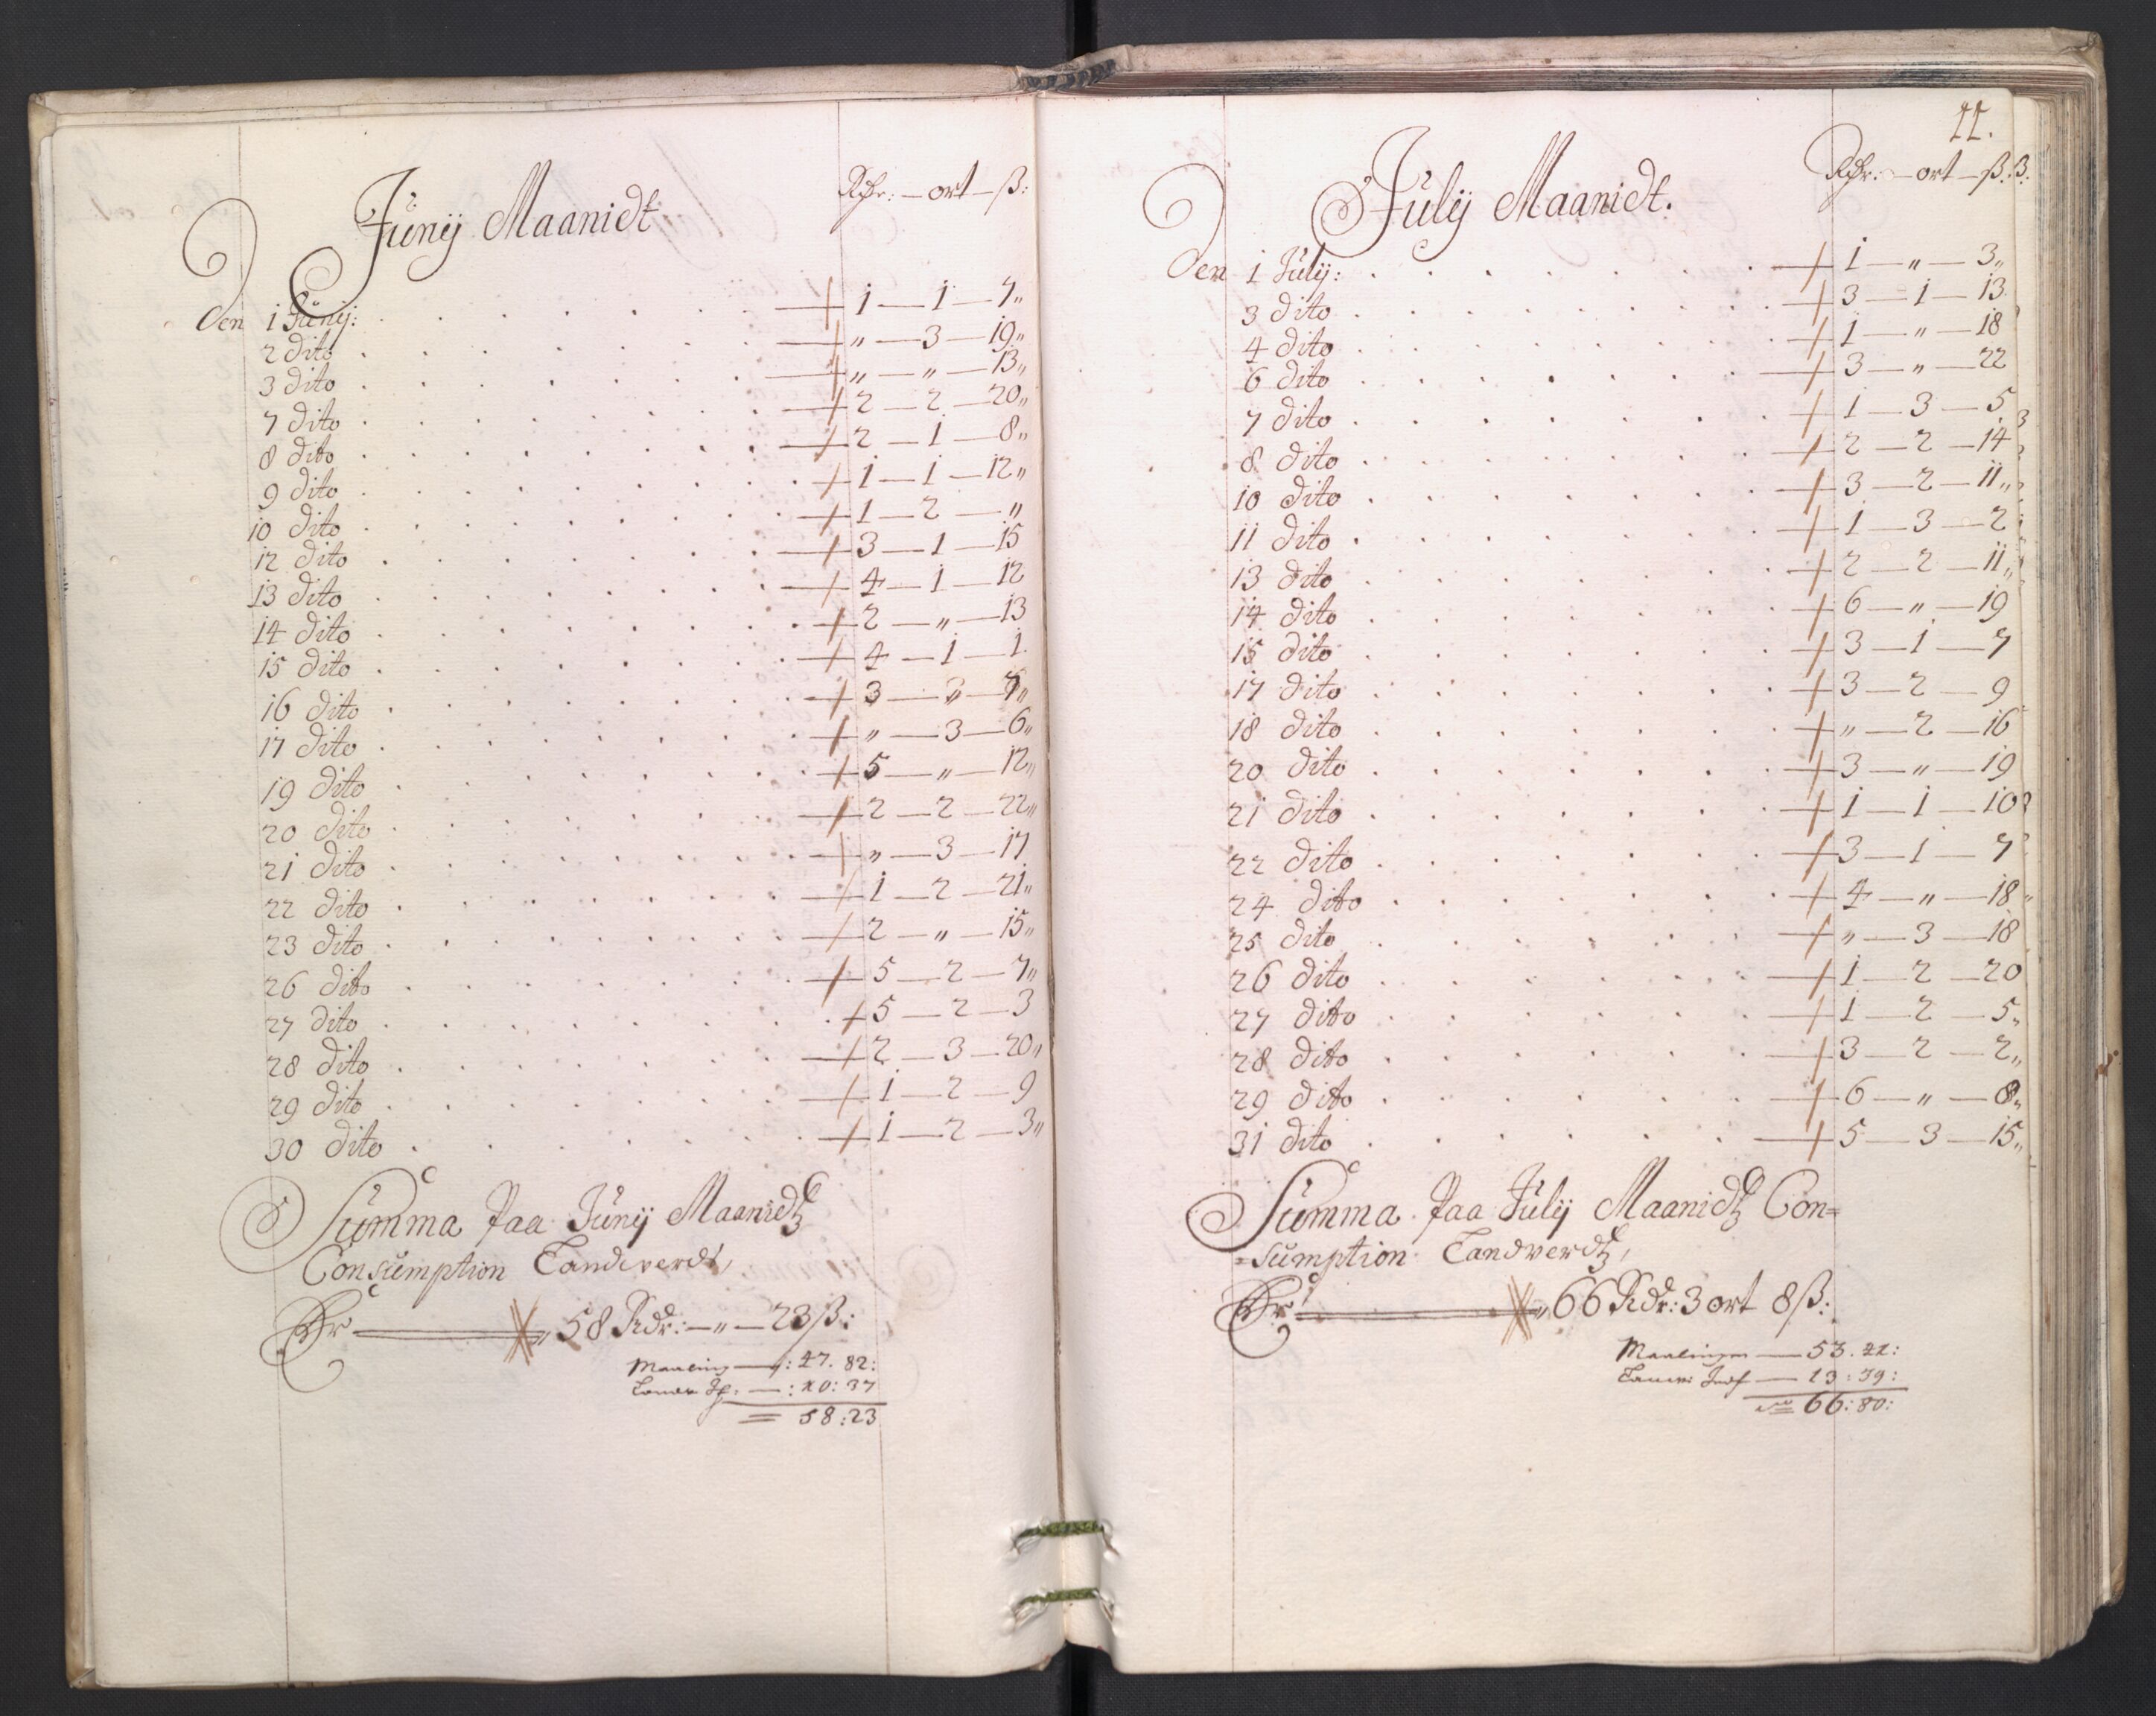 Junij Maanidt
Rdr: — ort — ß:
Den 1 Junij: 1 — 1 — 7„
2 dito „ — 3 — 19„
3 dito „ — „ — 13„
7 dito 2 — 2 — 20„
8 dito 2 — 1 — 8„
9 dito 1 — 1 — 12„
10 dito 1 — 2 — „
12 dito 3 — 1 — 15
13 dito 4 — 1 — 12
14 dito 2 — „ — 13
15 dito 4 — 1 — 1
16 dito 3 — „ —
17 dito „ — 3 — 6„
19 dito 5 — „ — 12„
20 dito 2 — 2 — 22„
21 dito „ — 3 — 17
22 dito 1 — 2 — 21„
23 dito 2 — „ — 15„
26 dito 5 — 2 — 7„
27 dito 5 — 2 — 3
28 dito 2 — 3 — 20„
29 dito 1 — 2 — 9
30 dito 1 — 2 — 3„
Summa Paa Junij Maanidtz
Consumption
Er — 58 Rdr: — „ — 23 ß:
47. 82:
10: 37
58: 23
11.
Julij Maanidt.
Rdr: — ort — ß:
Den 1 Julij: 1 — „ — 3„
3 dito 3 — 1 — 13
4 dito 1 — „ — 18
6 dito 3 — „ — 22
7 dito 1 — 3 — 5
8 dito 2 — 2 — 14
10 dito 3 — 2 — 11„
11 dito 1 — 3 — 2
13 dito 2 — 2 — 11„
14 dito 6 — „ — 19
15 dito 3 — 1 — 7
17 dito 3 — 2 — 9
18 dito „ — 2 — 16
20 dito 3 — „ — 19
21 dito 1 — 1 — 10
22 dito 3 — 1 — 7
24 dito 4 — „ — 18
25 dito „ — 3 — 18
26 dito 1 — 2 — 20
27 dito 1 — 2 — 5„
28 dito 3 — 2 — 2„
29 dito 6 — „ — 8„
31 dito 5 — 3 — 15„
Summa Paa Julij Maanidtz Con=
=sumption
Er — 66 Rdr: 3 ort 8 ß:
53. 41:
13: 39:
66: 80: